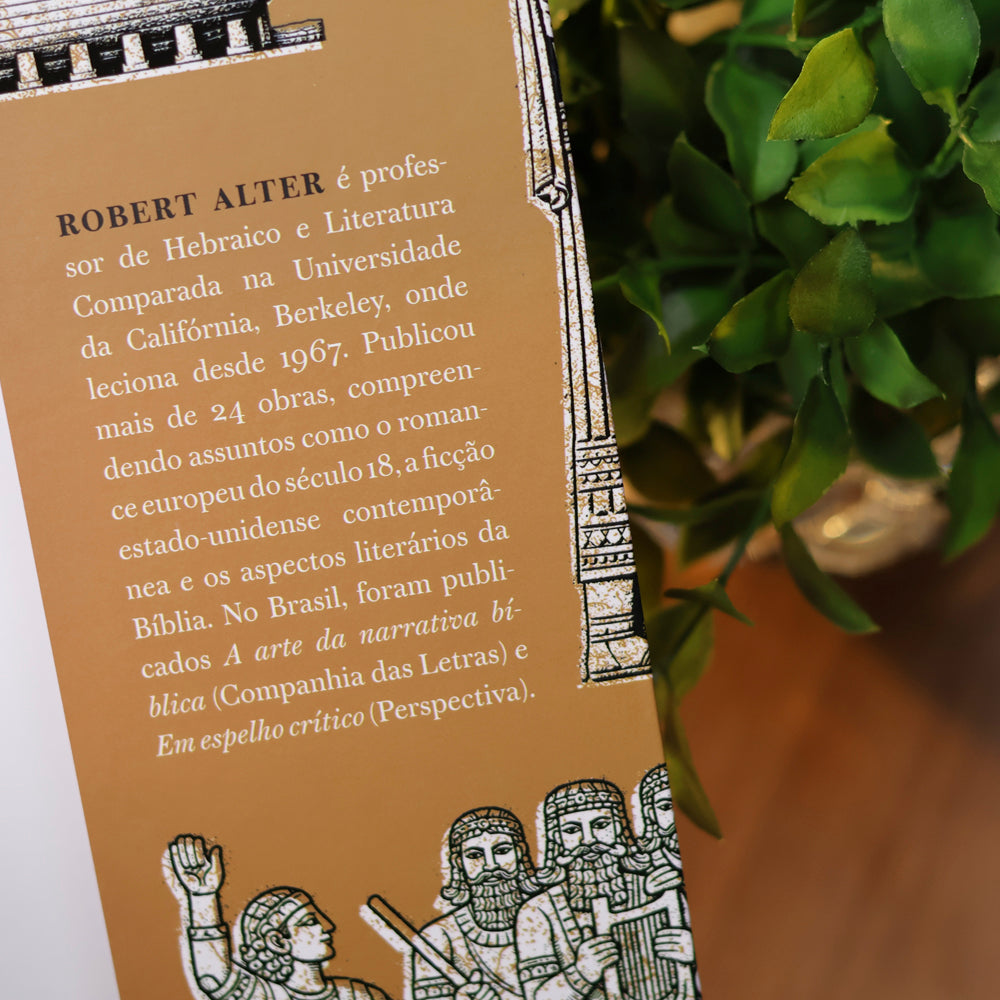 ROBERT ALTER é profes-
sor de Hebraico e Literatura
Comparada na Universidade
da Califórnia, Berkeley, onde
leciona desde 1967. Publicou
mais de 24 obras, compreen-
dendo assuntos como o roman-
ce europeu do século 18, a ficção
estado-unidense contemporâ-
nea e os aspectos literários da
Bíblia. No Brasil, foram publi-
cados A arte da narrativa bí-
blica (Companhia das Letras) e
Em espelho crítico (Perspectiva).